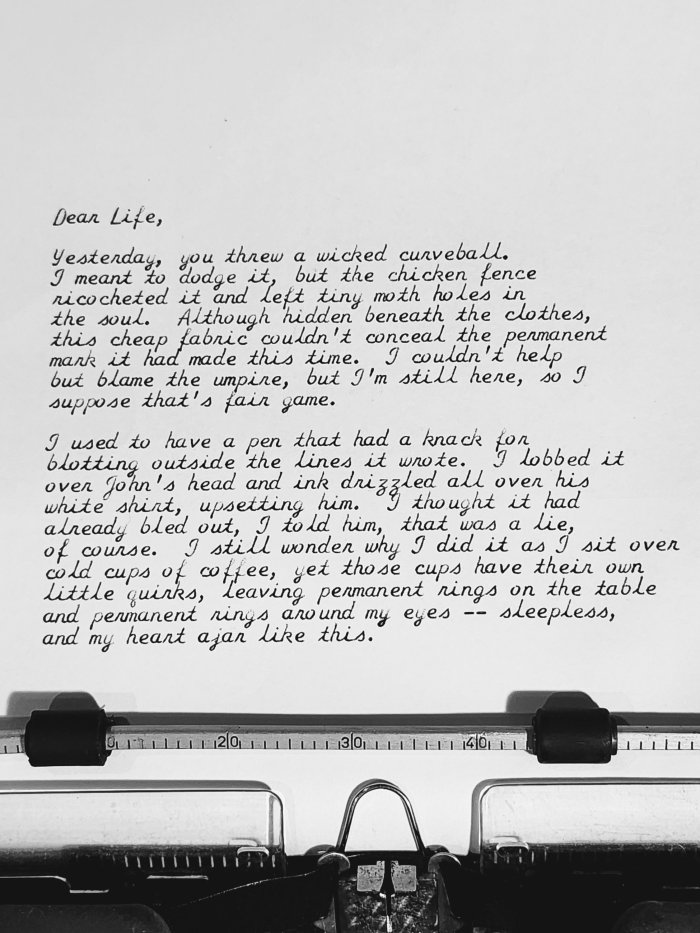 Dear Life,
Yesterday, you threw a wicked curveball.
I meant to dodge it, but the chicken fence
ricocheted it and left tiny moth holes in
the soul. Although hidden beneath the clothes,
this cheap fabric couldn't conceal the permanent
mark it had made this time. I couldn't help
but blame the umpire, but I'm still here, so I
suppose that's fair game.
I used to have a pen that had a knack for
blotting outside the lines it wrote. I lobbed it
over John's head and ink drizzled all over his
white shirt, upsetting him. I thought it had
already bled out, I told him, that was a lie,
of course. I still wonder why I did it as I sit over
cold cups of coffee, yet those cups have their own
little quirks, leaving permanent rings on the table
and permanent rings around my eyes -- sleepless,
and my heart ajar like this.
0 20 30 40